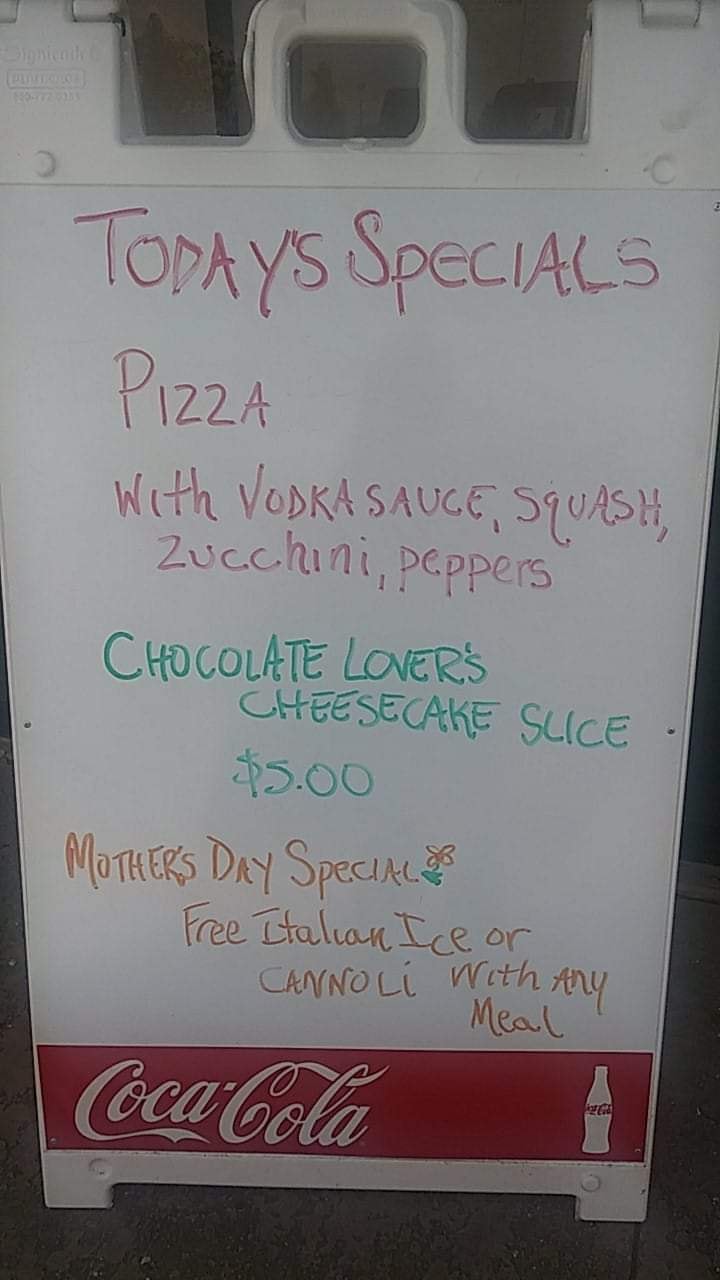 Signicade
TODAY'S SPECIALS
PIZZA
With VODKA SAUCE, SQUASH,
Zucchini, peppers
CHOCOLATE LOVER'S
CHEESECAKE SLICE
$5.00
MOTHER'S DAY SPECIAL
Free Italian Ice or
CANNOLi With Any
Meal
Coca-Cola
Coca-Cola